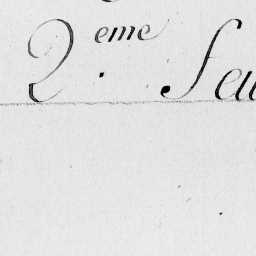 2.eme feu